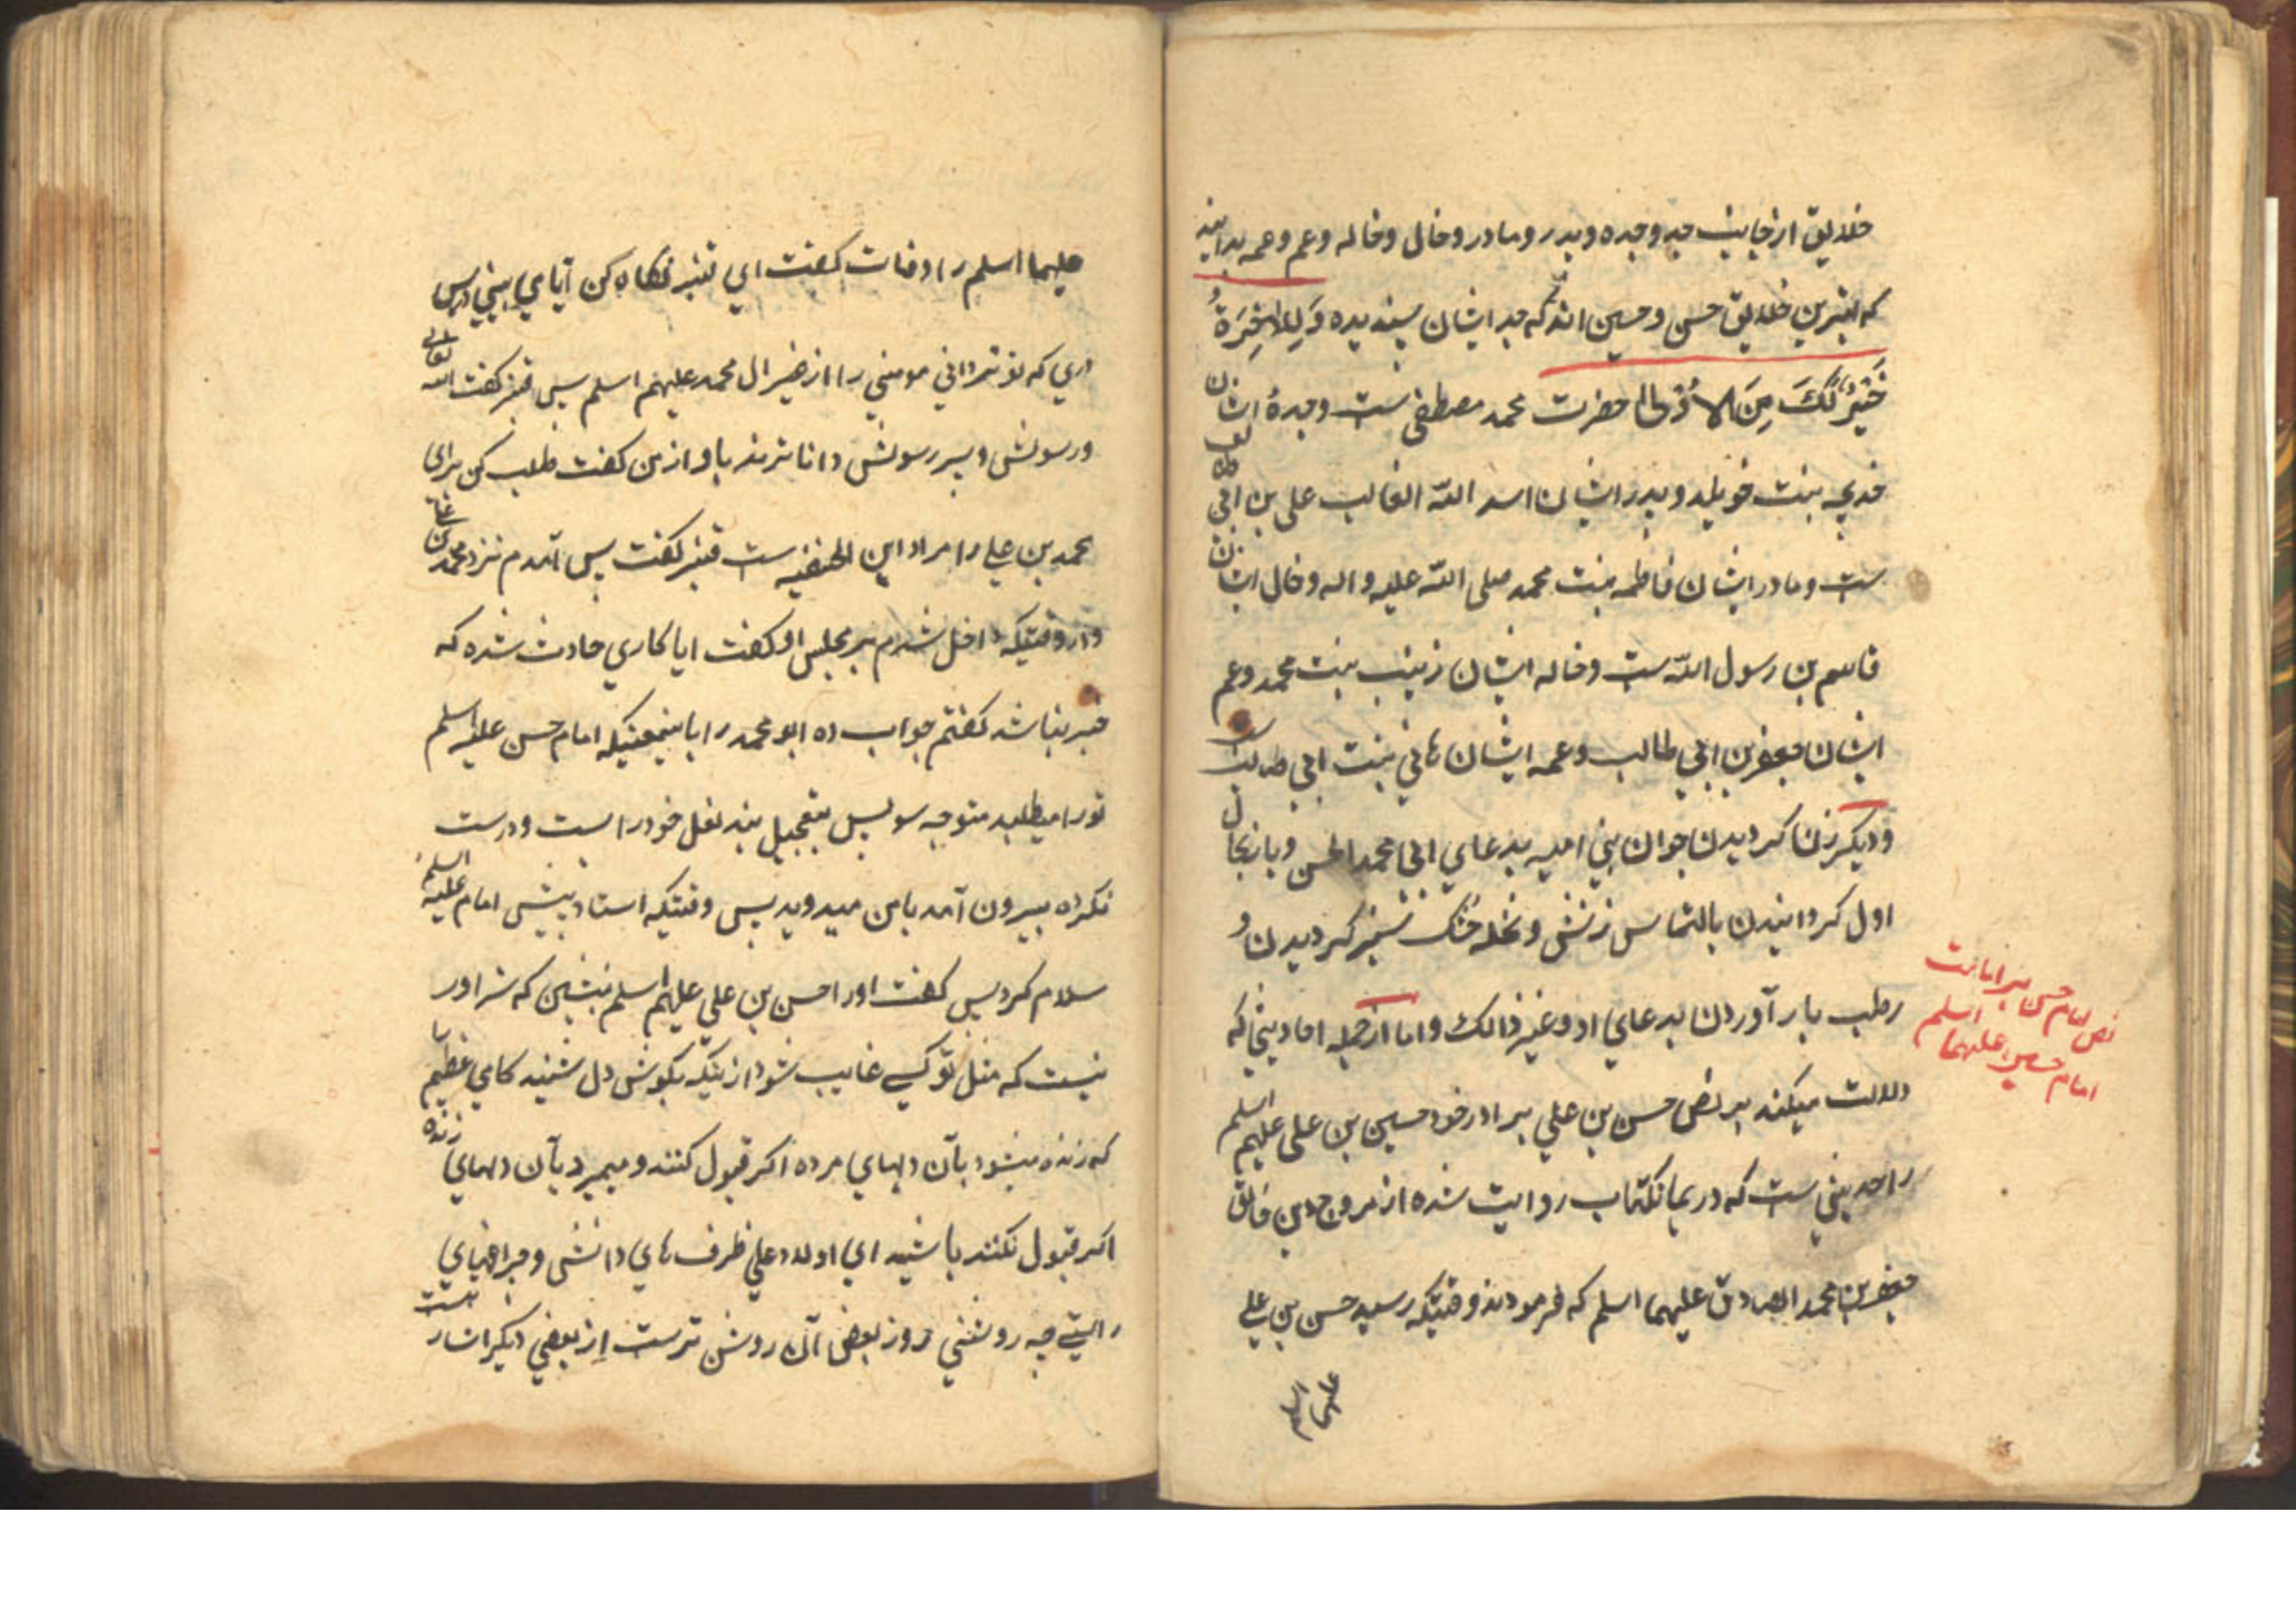 خلایق از جانب جد و جده و پدر و مادر و خال و خاله و عم و عمه بدانید
که بهترین خلایق حسن و حسین اند که جد ایشان پسندیده وَلَلآخِرَةُ
خَیْرٌ لَكَ مِنَ الاُوْلی حضرت محمد مصطفی ست و جدهٔ ایشان
خدیجه بنت خویلد و پدر ایشان اسد اللّه الغالب علی بن ابی طالب
ست و مادر ایشان فاطمه بنت محمد صلی اللّه علیه و اله و خال ایشان
قاسم بن رسول اللّه ست و خاله ایشان زینب بنت محمد و عم
ایشان جعفر بن ابی طالب و عمه ایشان هانی بنت ابی طالب ست
و دیکر زن کردیدن جوان بنی امیه بدعای ابی محمد الحسن و باز بحال
اول کردانیدن بالتماس زنش و نخله خشک سبز کردیدن و
رطب بار آوردن بدعای او و غیر ذالک و اما از جمله احادیثی که
دلالت میکند بر نص حسن بن علی برادر خود حسین بن علی علیهم اسلم
را حدیثی ست که در همانکتاب روایت شده از مروج دین خالق
جعفر بن محمد الصادق علیهما اسلم که فرمودند وقتیکه رسید حسن بن علی
علیهما اسلم
نص امام حسن بر امامت
امام حسین علیهما اسلم
علیهما اسلم را وفات کفت ای قنبر نکاه کن آیا می بینی در پس
دری که تو تر دانی مومنی را از غیر ال محمد علیهم اسلم پس قنبر کفت الله تعالی
و رسولش و پسر رسولش داناترند باو از من کفت طلب کن برای
محمد بن علی را مراد ابن الحنفیه ست قنبر کفت پس آمدم نزد محمد بن علی
و در وقتیکه داخل شدم بر مجلس او کفت ایا کاری حادث شده که
خیر نباشد کفتم جواب ده ابو محمد را باینمعنیکه امام حسن علیه اسلم
تورا میطلبد متوجه سو پس بتعجیل بند نعل خود را ست و درست
نکرده بیرون آمد با من میدوید پس وقتیکه استاد پیش امام علیه اسلم
سلام کرد پس کفت اورا حسن بن علی علیهم اسلم بنشین که سزاور
نیست که مثل تو کسی غایب شود از ینکه بکوش دل شنید کلامی عظیم
که زنده میشود بآن دلهای مرده اکر قبول کنند و میمیرد بآن دلهای زنده
اکر قبول نکنند باشید ای اولاد علی ظرف های دانش و چراغهای
راستی چه روشنی روز بعض آن روشن ترست از بعضی دیکر